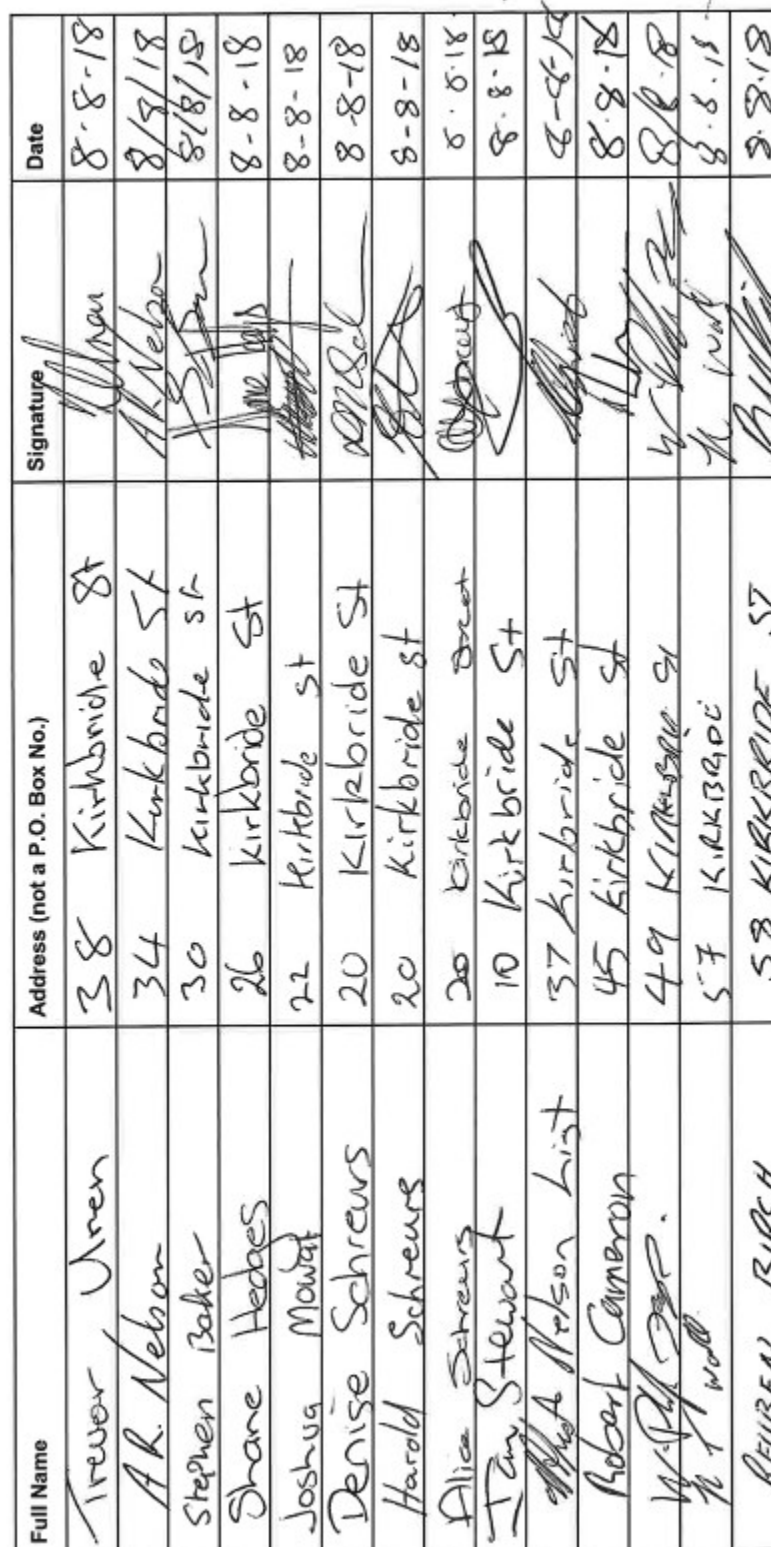 Full Name Address (not a P.O. Box No.) Signature Date
Trevor Uren 38 Kirkbride St 8-8-18
A.R. Nelson 34 Kirkbride St A.R. Nelson 8/8/18
Stephen Baker 30 Kirkbride st 8/8/18
Shane Hedges 26 Kirkbride St 8-8-18
Joshua Mowat 22 Kirkbride st 8-8-18
Denise Schreurs 20 Kirkbride St 8-8-18
Harold Schreurs 20 Kirkbride st 8-8-18
Alice Schreurs 20 Kirkbride Street 8.8.18
Ian Stewart 10 Kirkbride St 8.8.18
Nelson List 37 Kirbride St 8-8-18
Robert Cameron 45 Kirkbride St 8.8.18
49 8/8.18
Wall 57 KIRKBRIDE Wall 8.8.18
REUBEN BIRCH 58 KIRKBRIDE ST 8.8.18